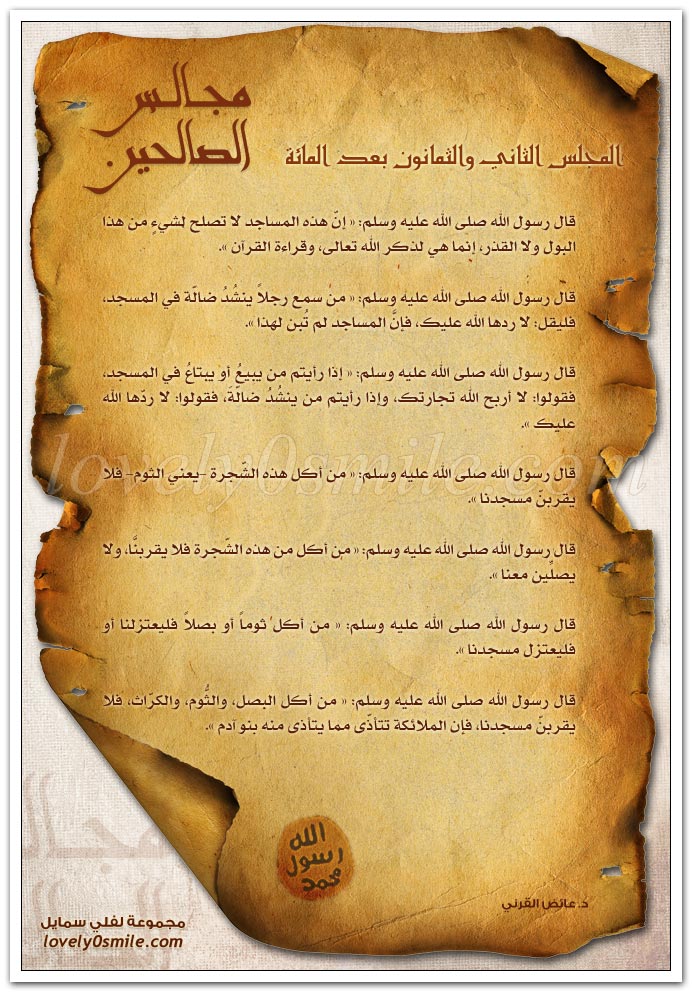 مجالس
الصالحين
المجلس الثاني والثمانون بعد المائة
قال رسول الله صلى الله عليه وسلم: « إنّ هذه المساجد لا تصلح لشيءٍ من هذا
البول ولا القذر، إنما هي لذكر الله تعالى، وقراءة القرآن ».
قال رسول الله صلى الله عليه وسلم: « من سمع رجلاً ينشُدُ ضالّة في المسجد،
فليقل: لا ردها الله عليك، فإنَّ المساجد لم تُبن لهذا ».
قال رسول الله صلى الله عليه وسلم: « إذا رأيتم من يبيعُ أو يبتاعُ في المسجد،
فقولوا: لا أربح الله تجارتك، وإذا رأيتم من ينشُدُ ضالّةَ، فقولوا: لا ردّها الله
عليك ».
قال رسول الله صلى الله عليه وسلم: « من أكل هذه الشّجرة -يعني الثوم- فلا
يقربنّ مسجدنا ».
قال رسول الله صلى الله عليه وسلم: « من أكل من هذه الشّجرة فلا يقربنَّا، ولا
يصلِّين معنا ».
قال رسول الله صلى الله عليه وسلم: « من أكل ثوماً أو بصلاً فليعتزلنا أو
فليعتزل مسجدنا ».
قال رسول الله صلى الله عليه وسلم: « من أكل البصل، والثُّوم، والكرّاث، فلا
يقربنَّ مسجدنا، فإن الملائكة تتأذّى مما يتأذى منه بنو آدم ».
lovely0smile.com
الله
رسول
محمد
د. عائض القرني
مجموعة لفلي سمايل
lovely0smile.com